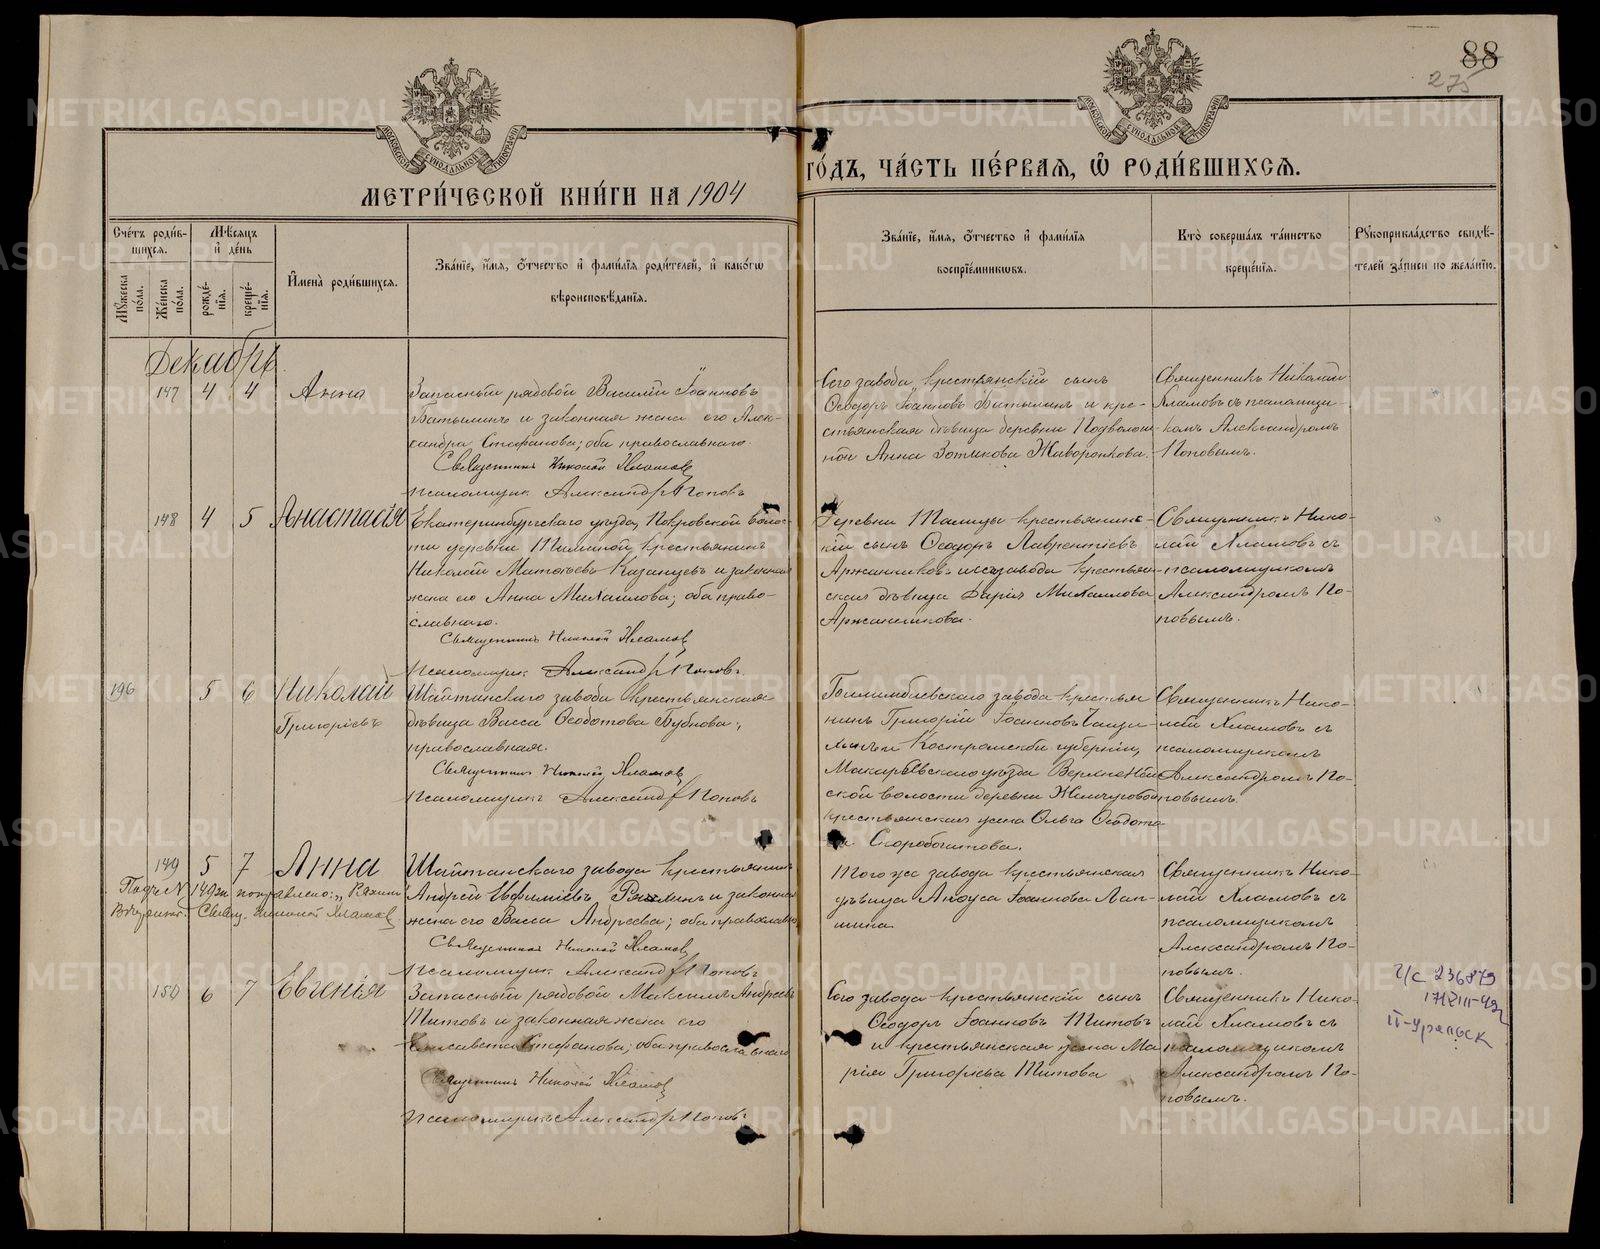 88
275
МОСКОВСКОЙ СѴНОДАЛЬНОЙ ТИПОГРАФІИ
МОСКОВСКОЙ СѴНОДАЛЬНОЙ ТИПОГРАФІИ
МЕТРИ́ЧЕСКОЙ КНИ́ГИ НА 1904
ГО́ДЪ, ЧА́СТЬ ПЕ́РВАѦ, Ѿ РОДИ́ВШИХСѦ.
Сче́тъ роди́в-
шихсѧ.
Мꙋ́жеска по́ла.
Же́нска по́ла.
Мѣ́сѧцъ и҆ де́нь
рожде́-
нїѧ.
креще́-
нїѧ.
И҆мена̀ роди́вшихсѧ.
Зва́нїе, и҆́мѧ, ѻ҆́тчество и҆ фами́лїѧ роди́телей, и҆ како́гѡ
вѣроисповѣ́данїѧ.
Зва́нїе, и҆́мѧ, ѻ҆́тчество и҆ фами́лїѧ
воспрїе́мникѡвъ.
Кто̀ соверша́лъ та́инство
креще́нїѧ.
Рꙋкоприкла́дство свидѣ́-
телей за́писи по жела́нїю.
Декабрь
147 4 4 Анна
Запасный рядовой Василій Іоанновъ
Батылинъ и законная жена его Алек-
сандра Стефанова; оба православнаго.
Священникъ Николай Хламовъ
Псаломщикъ Александръ Поповъ
Сего завода крестьянскій сынъ
Ѳеодоръ Іоанновъ Батылинъ и кре-
стьянская дѣвица деревни Подволош-
ной Анна Зотикова Жаворонкова.
Священникъ Николай
Хламовъ съ псаломщи-
комъ Александромъ
Поповымъ.
148 4 5 Анастасія
Екатеринбургскаго уѣзда, Покровской воло-
сти деревни крестьянинъ
Николай Казанцевъ и законная
жена его Анна Михаилова; оба право-
славнаго.
Священникъ Николай Хламовъ
Псаломщикъ Александръ Поповъ.
Деревни Талицы крестьянс-
кій сынъ Ѳеодоръ Лаврентіевъ
Аржанниковъ и сего завода крестьян-
ская дѣвица Дарія Михаилова
Аржанникова.
Священникъ Нико-
лай Хламовъ съ
псаломщикомъ
Александромъ По-
повымъ.
196 5 6 Николай
Григоріевъ
Шайтанскаго завода крестьянская
дѣвица Васса Ѳеодотова Бубнова;
православная.
Священникъ Николай Хламовъ
Псаломщикъ Александръ Поповъ
Билимбаевскаго завода крестья-
нинъ Григорій Іоанновъ
и Костромской губерніи,
Макарьевскаго уѣзда
ской волости деревни
крестьянская жена Ольга Ѳеодото-
ва Скоробогатова.
Священникъ Нико-
лай Хламовъ съ
псаломщикомъ
Александромъ По-
повымъ.
149 5 7 Анна
Шайтанскаго завода крестьянинъ
Андрей Евфиміевъ и законная
жена его Васса Андреева; оба православн.
Священникъ Николай Хламовъ
Псаломщикъ Александръ Поповъ
149 поправлено:
Свящ. Николай Хламовъ
Того же завода крестьянская
дѣвица Іоаннова Лап-
шина.
Священникъ Нико-
лай Хламовъ съ
псаломщикомъ
Александромъ По-
повымъ.
150 6 7 Евгенія
Запасный рядовой Максимъ Андреевъ
Титовъ и законная жена его
Елисавета Стефанова; оба православнаго
Священникъ Николай Хламовъ
Псаломщикъ Александръ Поповъ
Сего завода крестьянскій сынъ
Ѳеодоръ Іоанновъ Титовъ
и крестьянская жена Ма-
рія Григоріева Титова
Священникъ Нико-
лай Хламовъ съ
псаломщикомъ
Александромъ По-
повымъ.
236879
Уральск
METRIKI.GASO-URAL.RU